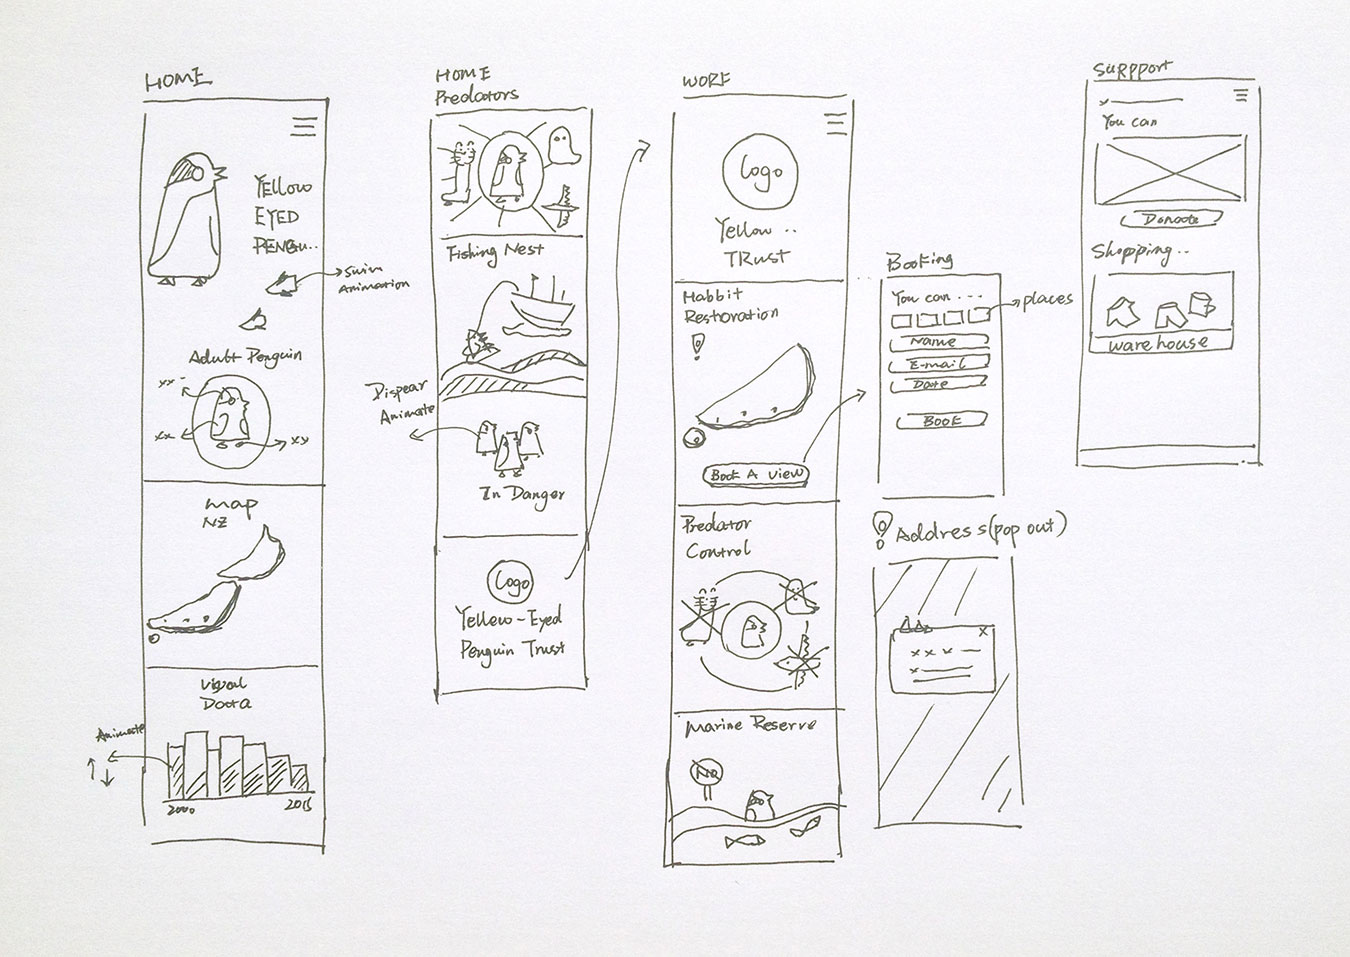 HOME
YEllow
EYED
PENGU..
swim
Animation
Adult Penguin
xx -
xx
xy
map
NZ
visual
Data
Animate
2000
2015
HOME
Predators
Fishing Nest
Dispear
Animate
In Danger
Logo
Yellow-Eyed
Penguin Trust
WORK
Logo
Yellow ..
TRust
Habbit
Restoration
Book A view
Predator
Control
Marine Reserve
No
Booking
You can ...
places
Name
E-mail
Date
Book
Address(pop out)
x
x x x
SuRpport
You can
Donate
Shopping..
warehouse